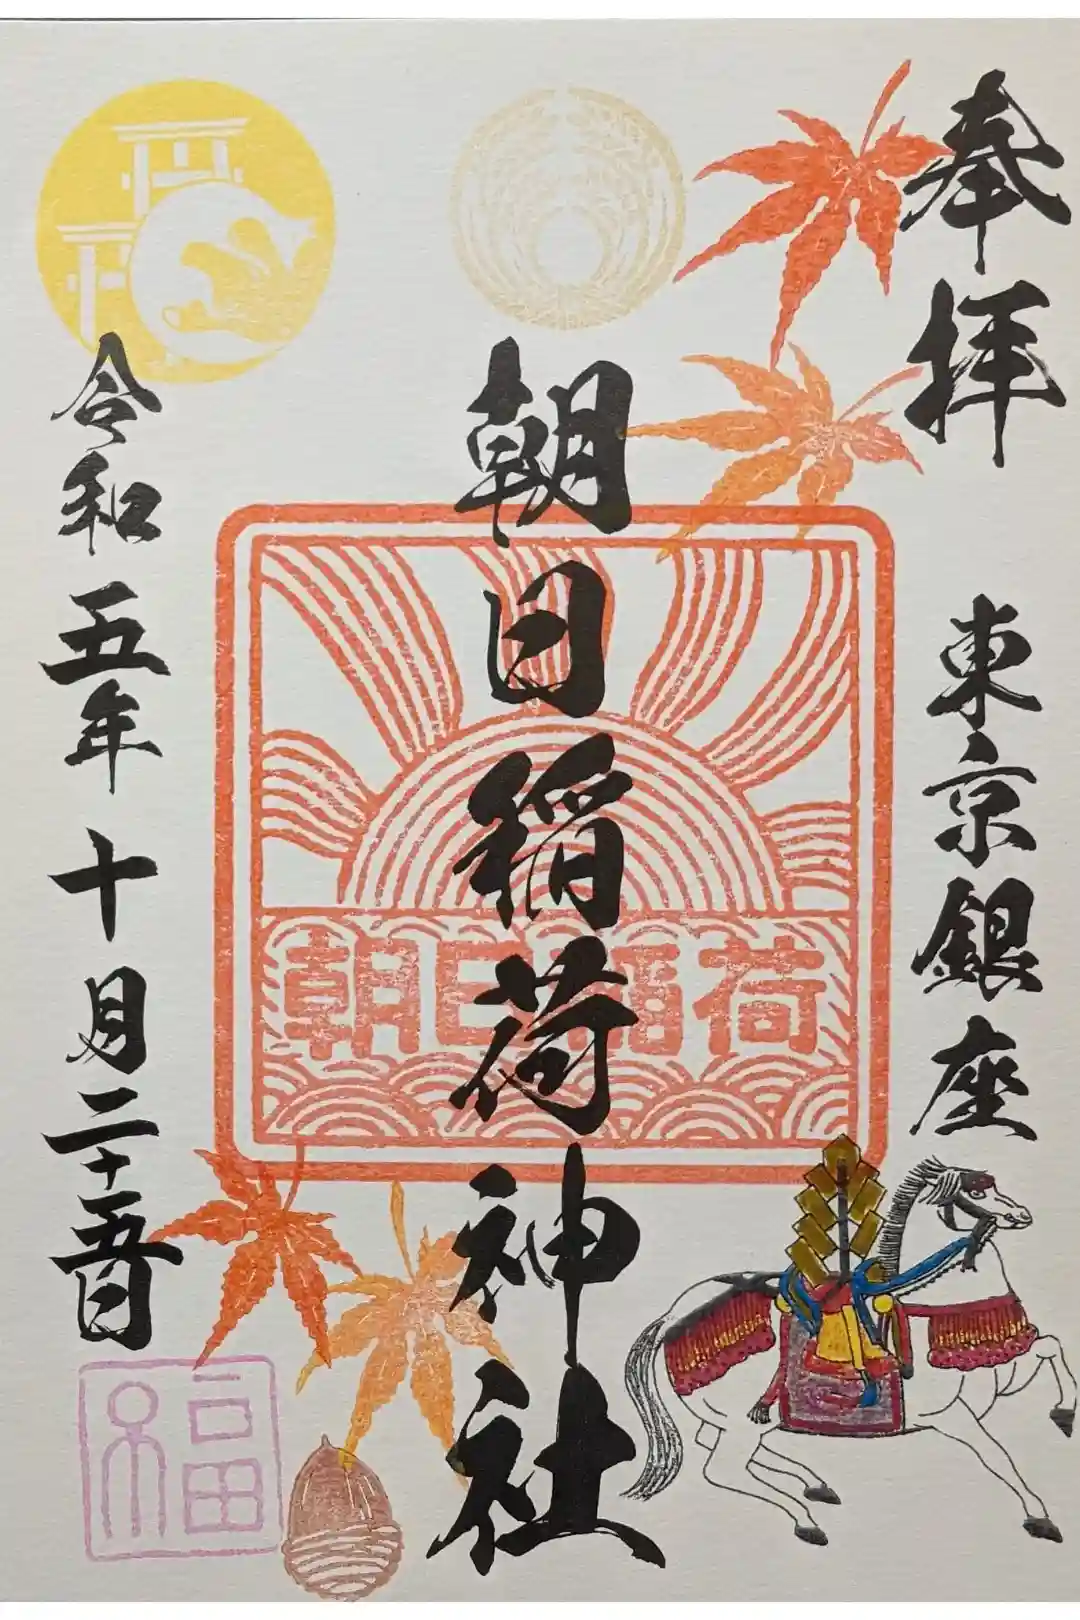 奉拝
東京銀座
朝日稲荷神社
朝日稲荷
令和五年十月二十五日
福